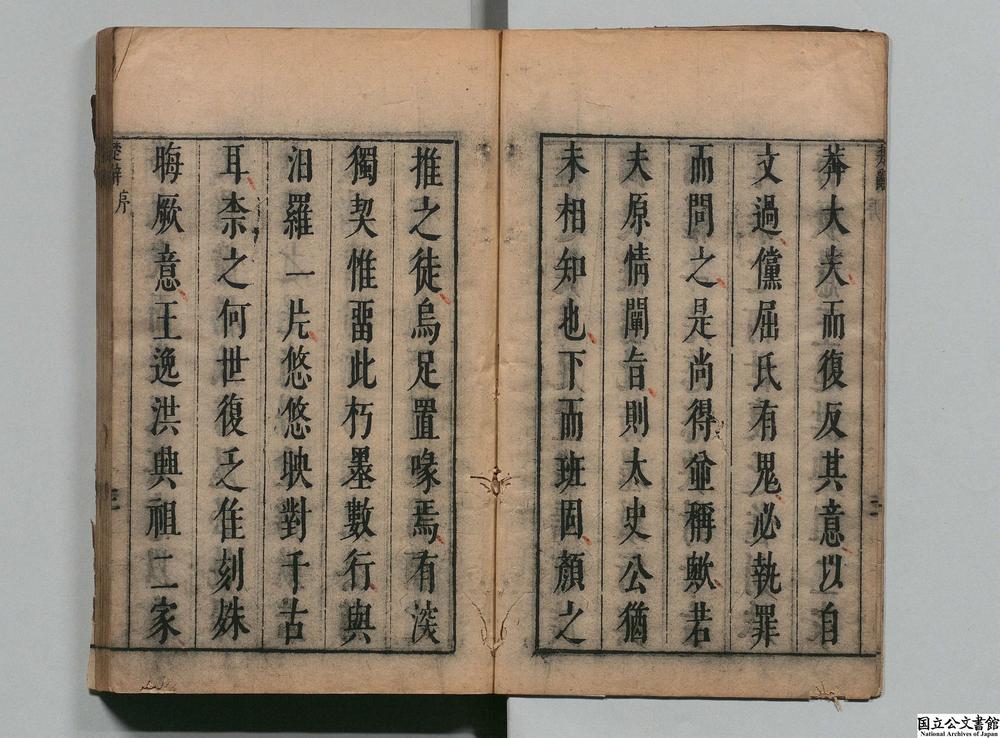 莽大夫而復反其意以自
文過儻屈氏有鬼必執罪
而問之是尚得並稱歟若
夫原情闡旨則太史公猶
未相知也下而班固顏之
推之徒烏足置喙焉有深
獨契惟畱此朽墨數行與
汨羅一片悠悠映對千古
耳柰之何世復乏隹刻姝
晦厥意王逸洪興祖二家
楚辭 序
三
国立公文書館
National Archives of Japan